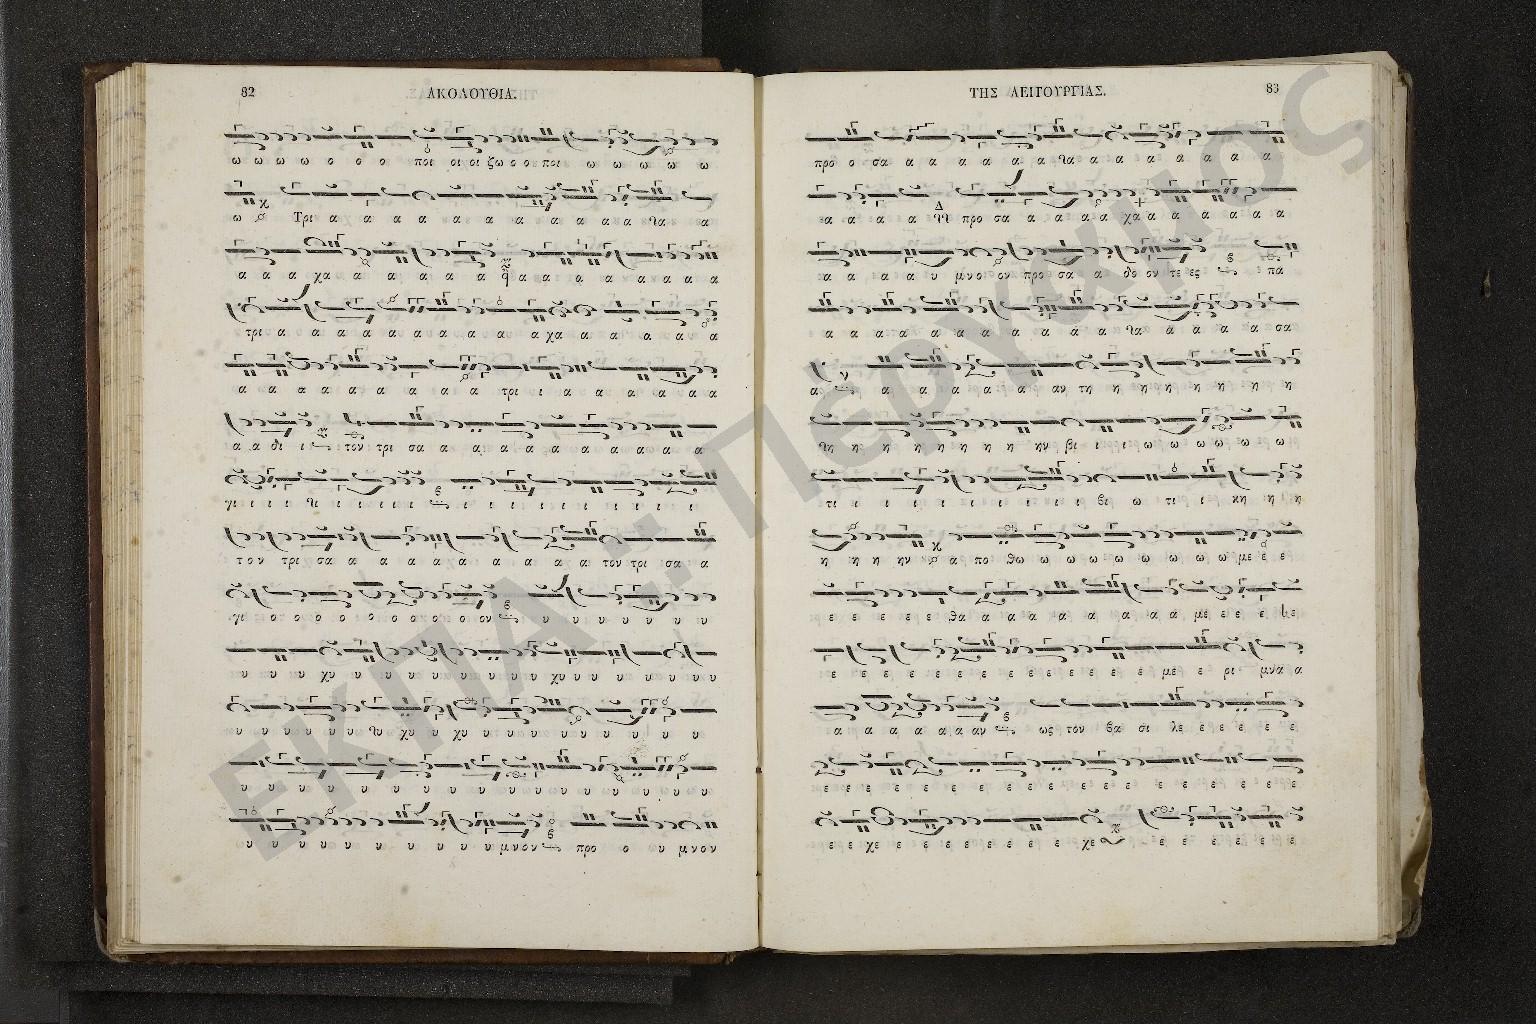 82
ΑΚΟΛΟΥΘΙΑ.
ω ω ω ω ο ο ο ποι οι οι ζω ο ο ποι ω ω ω ω ω
ω Τρι α χα α α α α α α α α α α
α α α χα α α α α α α α α α α α α α α
τρι α α α α α α α α α α α χα α α α α α
α α α α α α α α α τρι ι α α α α α α α
α α δι ι τον τρι σα α α α α α α α α α α α
γι ι ι ι ι ι ι ι ι ι ι ι ι ι ι ι ι
τον τρι σα α α α χα α α α α τον τρι σα α
γι ο ο ο ο ο ο ο ο ον υ υ υ υ υ υ υ
υ υ υ χυ υ υ υ υ υ υ υ χυ υ υ υ υ υ υ υ
υ υ υ υ υ χυ υ χυ υ υ υ υ υ υ υ υ υ
υ υ υ υ υ υ υ υ υ υ υ υ υ υ υ υ
υ υ υ υ υ υ υ υ υ μνον προ ο υ μνον
ΤΗΣ ΛΕΙΤΟΥΡΓΙΑΣ.
83
προ ο σα α α α α α α α α α α α α α α
α α α α προ σα α α α α χα α α α α α α
α α α α υ μνοιοιον προ σα α δο ον τε ες πα
α α α α α α α α α α α α α α α α α σα
α α α α α α α α αν τη η η η η η η η η η
η η η η η η η ην βι ι ι ω ω ω ω ω ω
τι ι ι ι ι ι ι ι ι ι βι ω τι ι κη η η
η η η ην α πο θω ω ω ω ω ω ω ω ω με ε ε
ε ε ε ε ε θα α α α α α α α α με ε ε ε
ε ε ε ε ε ε ε ε ε ε ε ε ε με ε ρι μνα α
α α α α α α αν ως τον βα σι λε ε ε ε ε
ε ε ε ε ε ε ε ε ε ε ε ε ε ε ε ε
ε ε χε ε ε ε ε ε ε ε ε χε ε ε ε ε ε ε
ΕΚΠΑ :: ΠΕΡΓΑΜΟΣ